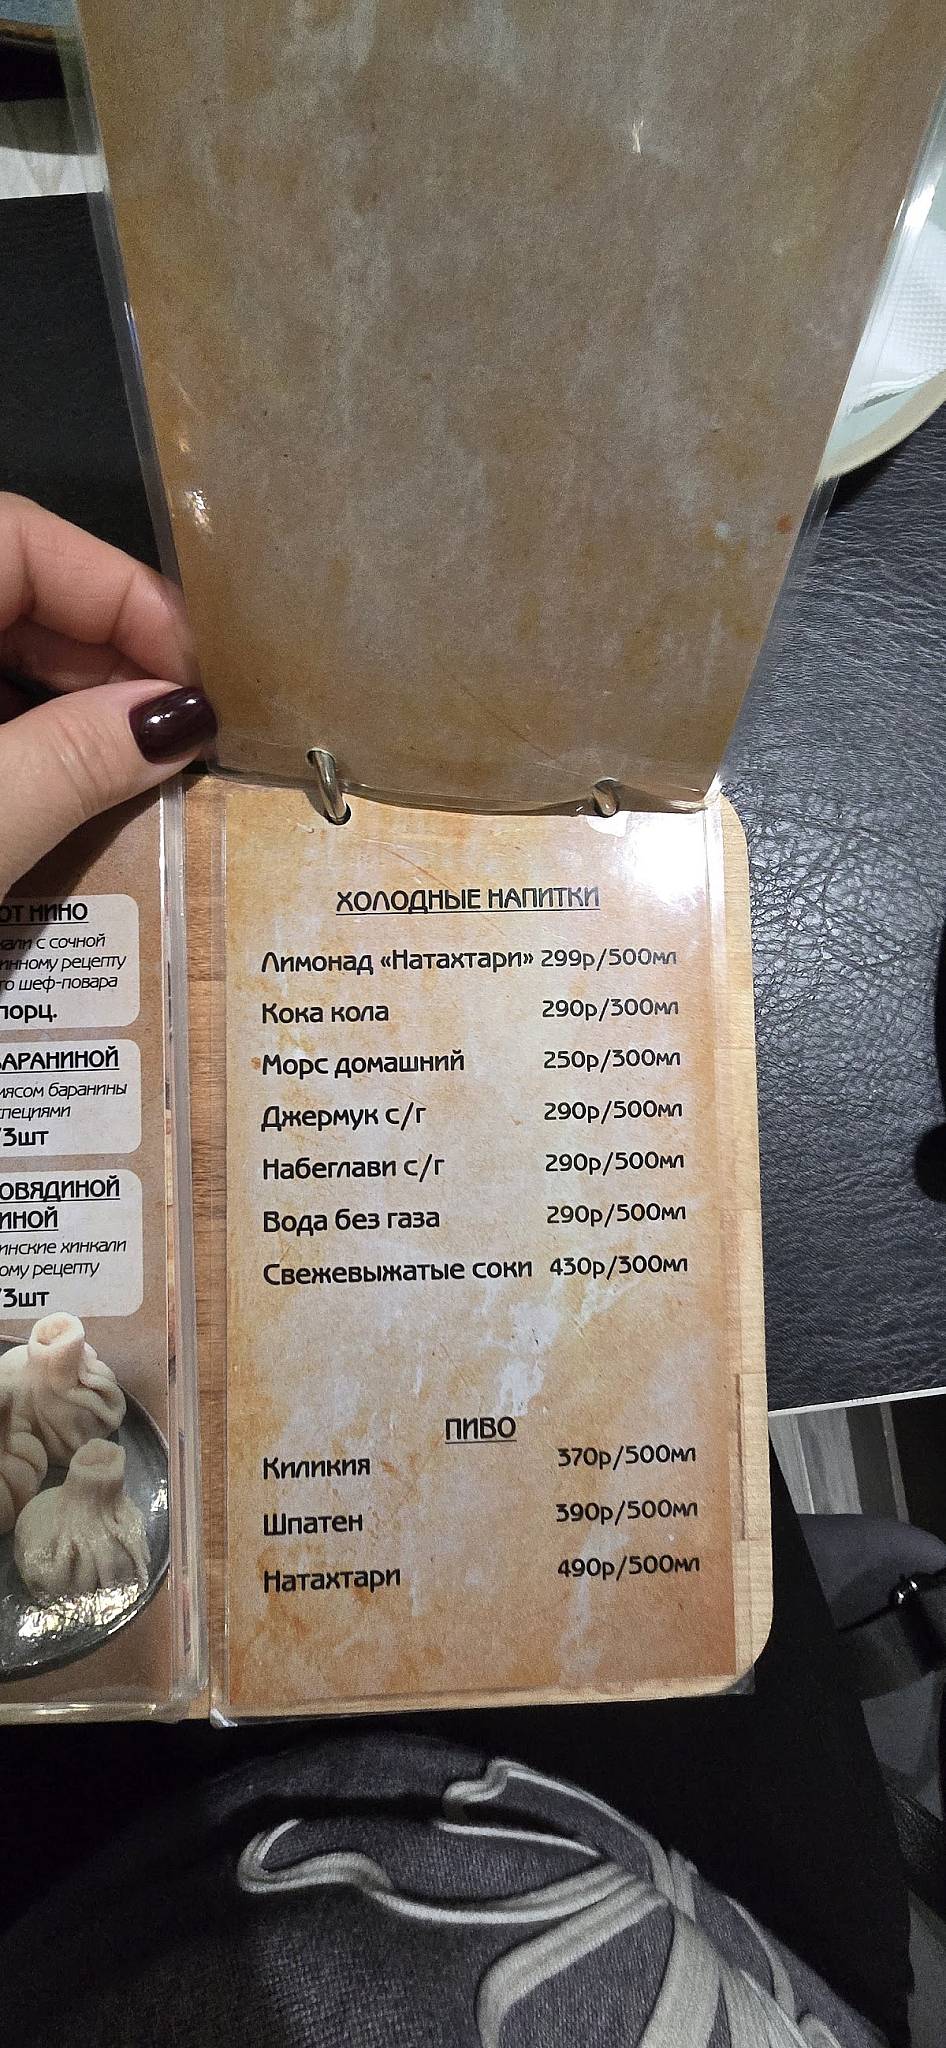 ОТ НИНО
с сочной
рецепту
шеф-повара
порц.
БАРАНИНОЙ
мясом баранины
специями
/3шт
ГОВЯДИНОЙ
хинкали
рецепту
/3шт
ХОЛОДНЫЕ НАПИТКИ
Лимонад «Натахтари» 299р/500мл
Кока кола 290р/300мл
Морс домашний 250р/300мл
Джермук с/г 290р/500мл
Набеглави с/г 290р/500мл
Вода без газа 290р/500мл
Свежевыжатые соки 430р/300мл
ПИВО
Киликия 370р/500мл
Шпатен 390р/500мл
Натахтари 490р/500мл